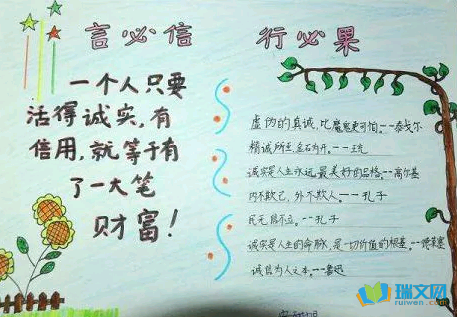 言必信 行必果
一个人只要
活得诚实,有
信用,就等于有
了一大笔
财富!
虚伪的真诚,比魔鬼更可怕。--泰戈尔
精诚所至,金石为开。--王充
诚实是人生永远最美好的品格。--高尔基
内不欺己,外不欺人。--孔子
民无信不立。--孔子
诚实是人生的命脉,是一切价值的根基。--德莱塞
诚信为人之本。--鲁迅
瑞文网